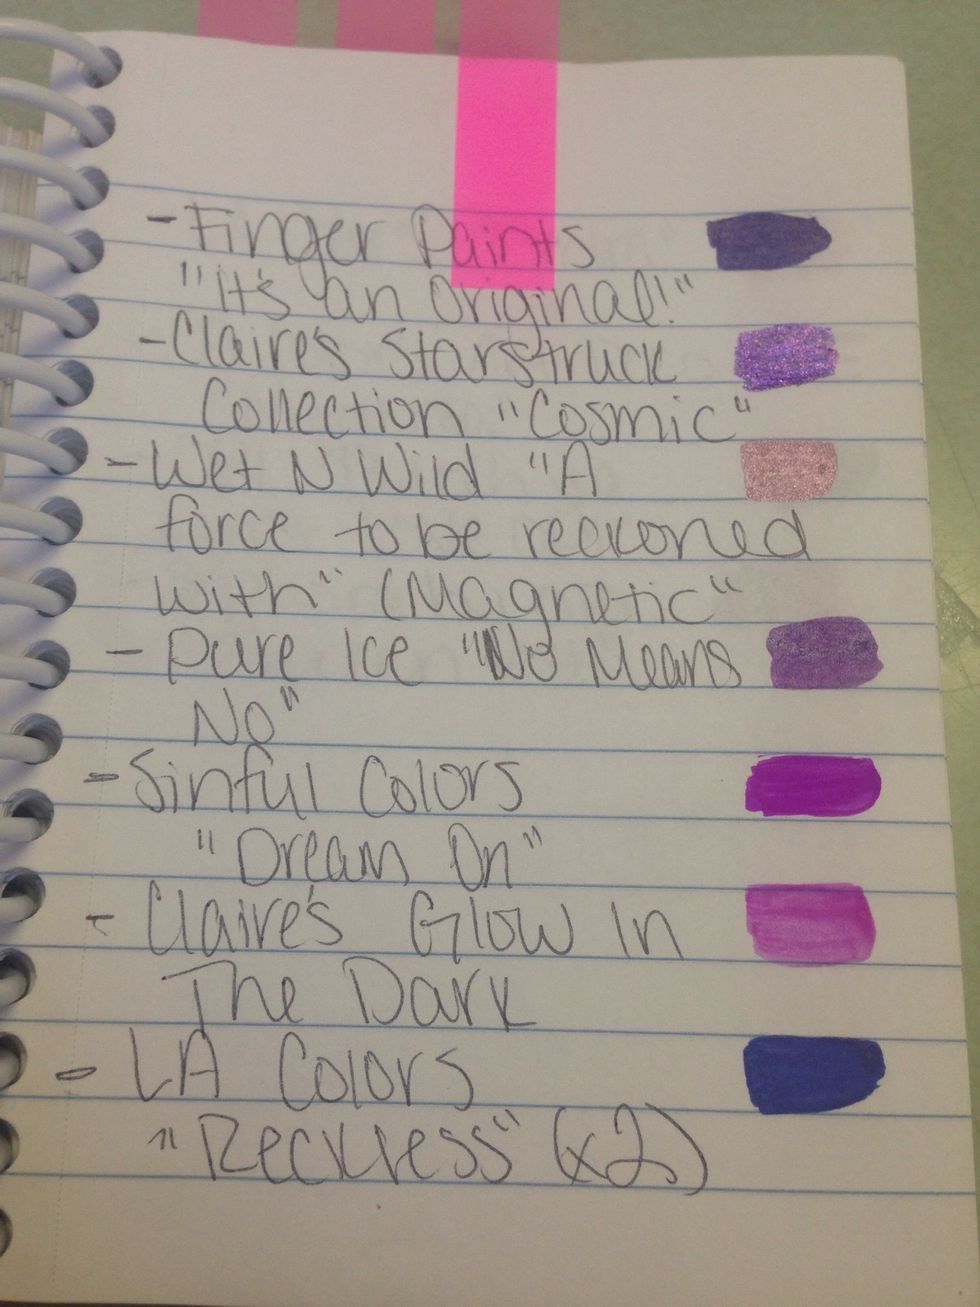 - Finger Paints
"It's an Original!"
- Claire's Starstruck
Collection "Cosmic"
- Wet N Wild "A
force to be reckoned
with" (Magnetic"
- Pure Ice "No Means
No"
- Sinful Colors
"Dream On"
- Claire's Glow In
The Dark
- LA Colors
"Reckless" (x2)